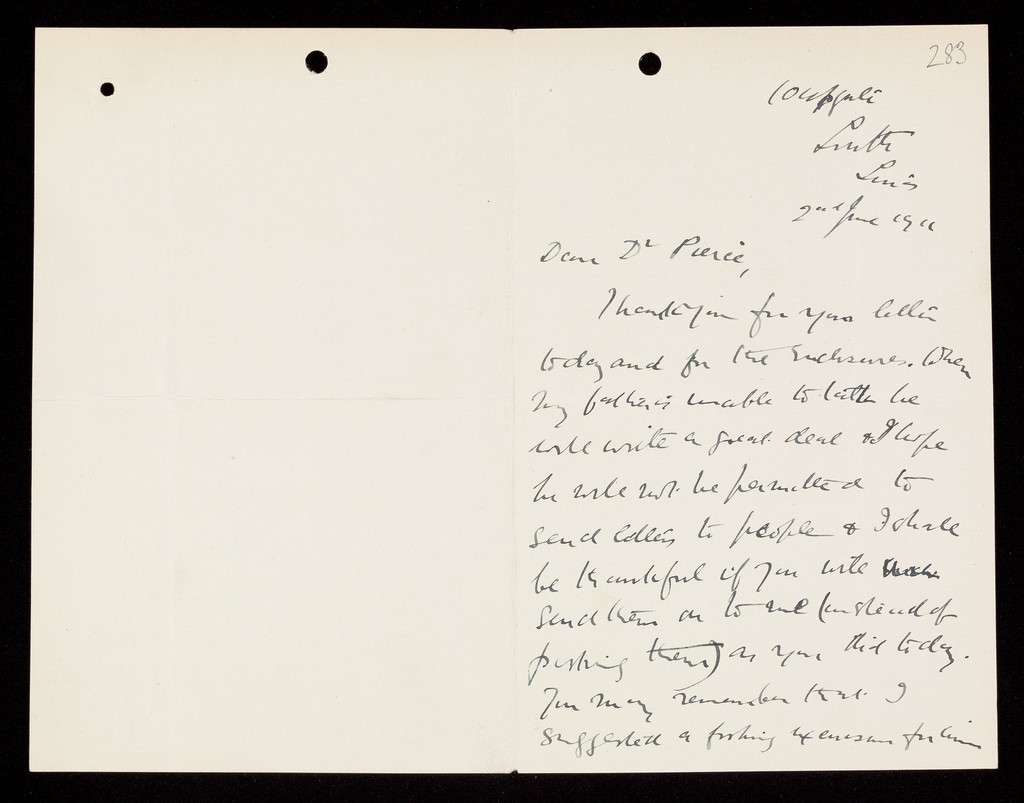 283
Louth
Lincs
2nd June 1911
Dear Dr Pierce,
Thank you for your letter
today and for the enclosures. When
my father is unable to talk he
will write a great deal & I hope
he will not be permitted to
send letters to people & I shall
be thankful if you will
send them on to me (instead of
posting them) as you did today.
You may remember that I
suggested a fishing excursion for him